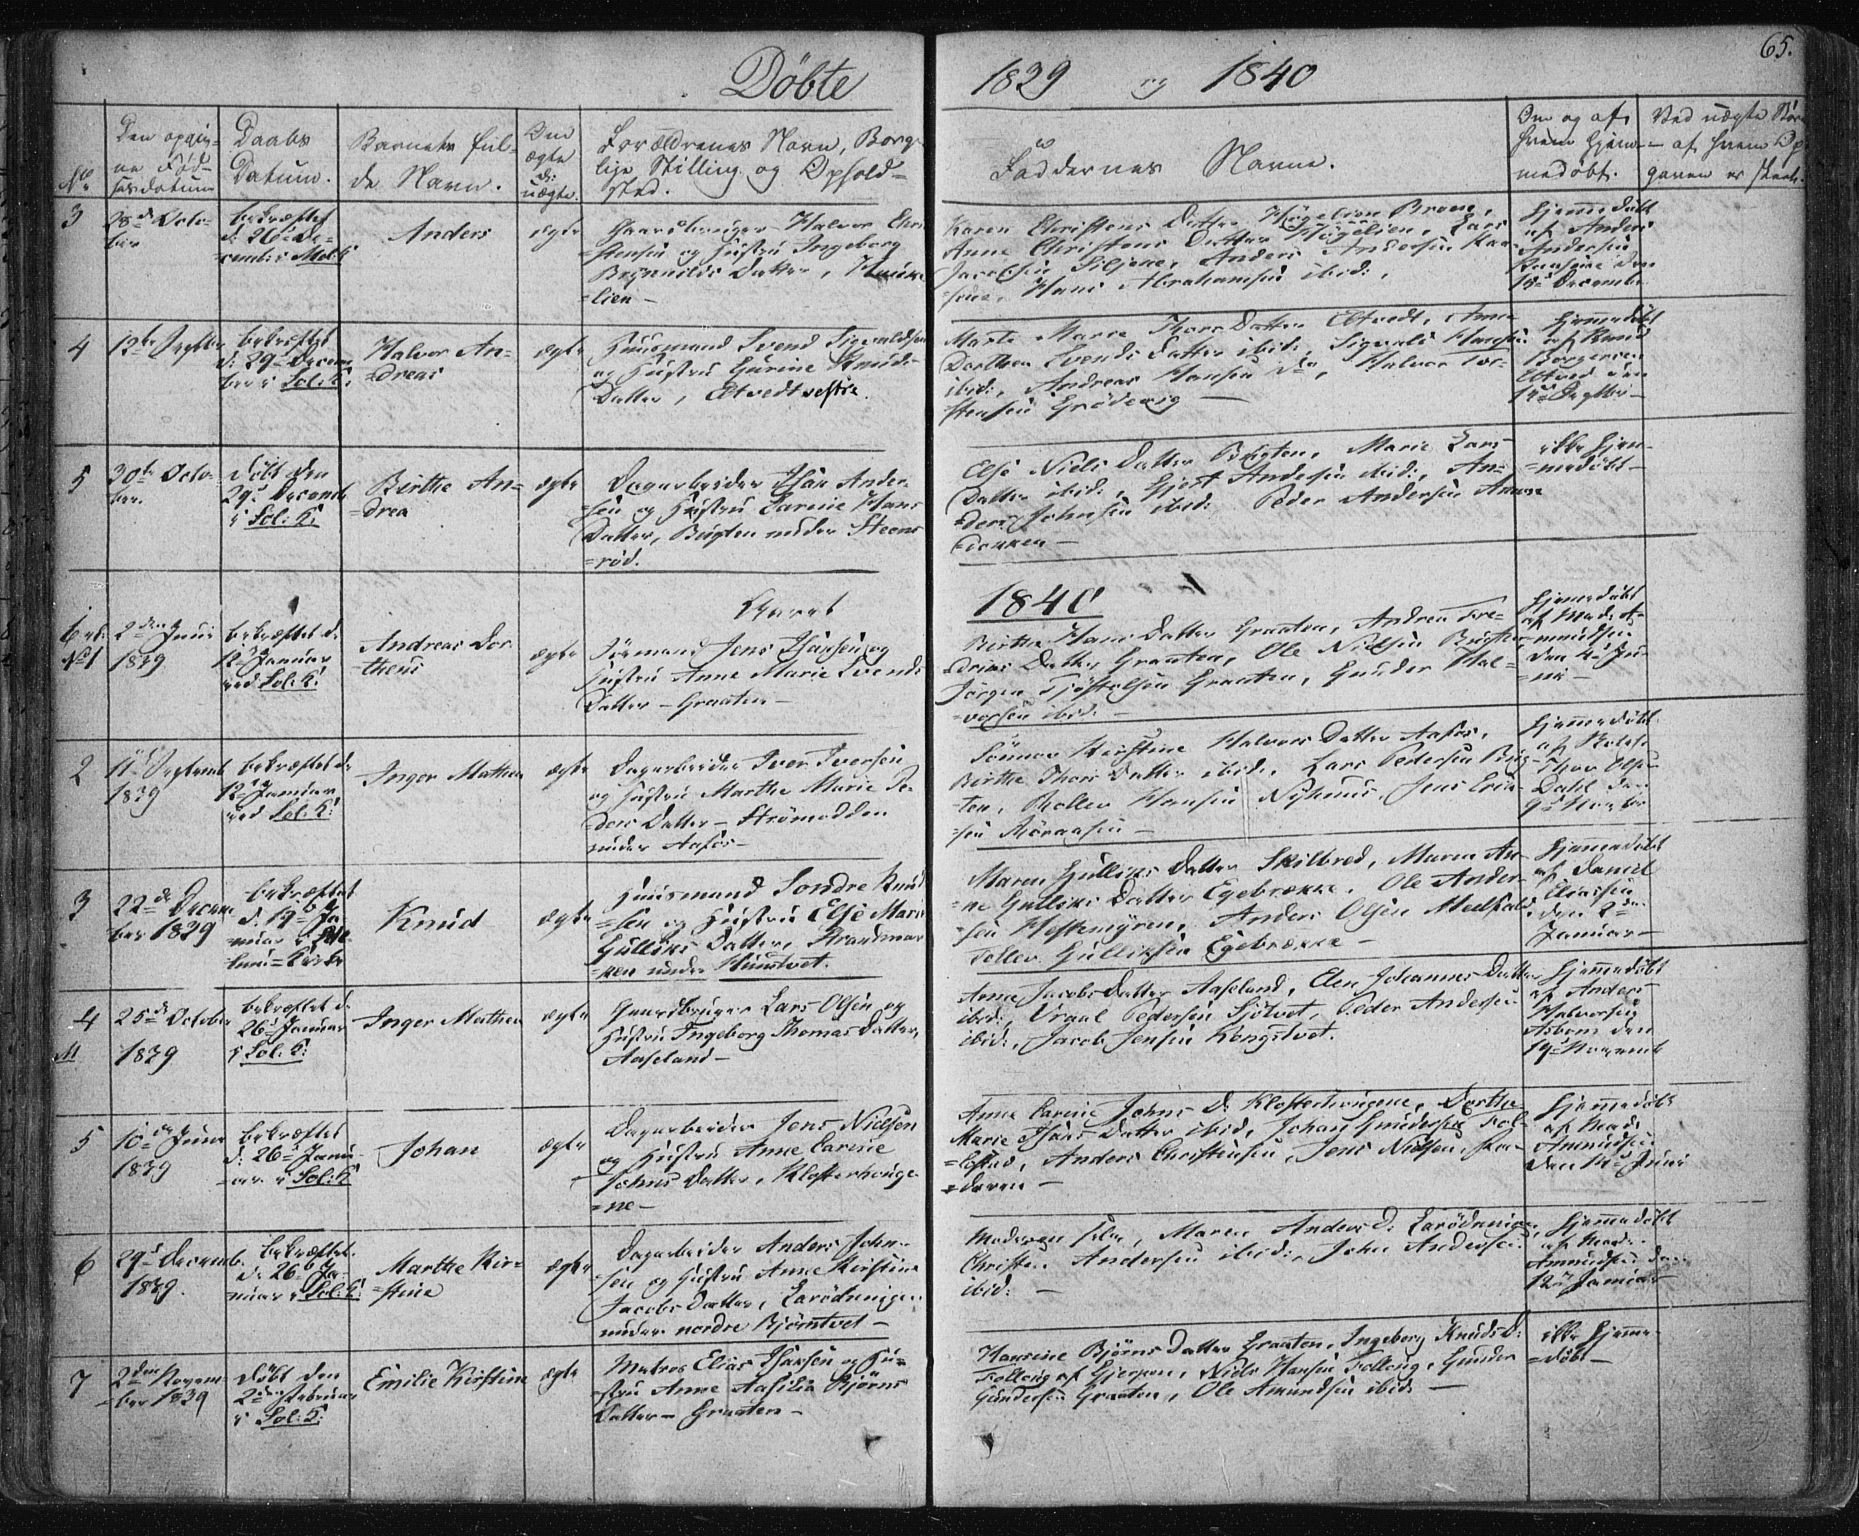 Döbte
1839 og 1840
65.
No
Den opgiv-
ne Föd-
selsdatum
Daabs
Datum.
Barnets ful-
de Navn.
Om
ægte
el:
uægte.
Forældrenes Navn, Borger-
lige Stilling og Opholds-
sted.
Faddernes Navne.
Om og af
hvem hjem-
medöbt.
Ved uægte Börn
- af hvem Op-
gaven er skeet.
3
28de Octo-
ber
bekræftet
d: 26de De-
cemb: i Mel: K
Anders
ægte
Gaardbruger Halvor Chri-
stensen og Hustru Ingeborg
Brynilds Datter,
=lien -
Karen Christens Datter Högelien
Anne Christens Datter Högelien, Lars
Jacobsen Siljane, Anders Andersen
Hans Abrahamsen ibid:,
hjemmedöbt
af Anders
Andersen
den
December
4
12te Septbr
bekræftet
d: 29de Decem-
ber i Sol: K:
Halvor An-
=dreas
ægte
Huusmand Svend Sigvaldsen
og Hustru Gurine Knuds-
Datter, Ætvedt vestre.
Marte Marie Thors Datter Ætvedt, Anne
Dorthea Svends Datter ibid:, Sigvald Hansen
ibid:, Andreas Hansen do, Halvor Tor-
stensen Grödevig -
hjemmedöbt
af Knud
Borgersen
Etved den
Septbr -
5
30te Octo-
ber.
döbt den
29de Decemb
i Sol: K:
Birthe An-
=drea
ægte
Dagarbeider Isak Ander-
sen og Hustru Carine Hans
Datter, Bugten under Steens
=röd.
Else Niels Datter Bugten, Marie Lars-
Datter ibid:, Gjert Andersen ibid:, An-
=ders Johnsen ibid: Peder Andersen
=dokken -
ikke hjem-
=medöbt -
Aaret
1840
No 1
2den Juni
1839
bekræftet d:
12te Januar
ved Sol: K:
Andreas Dor
theus
ægte
Sömand Jens Isaksen og
Hustru Anne Marie Svends
Datter - Graaten -
Birthe Hans Datter Graaten, Andrea Fre-
driks Datter Graaten, Ole Nielsen Bugten,
Jörgen Tjöstolsen Graaten, Gunder Hal-
=vorsen ibid: -
hjemmedöbt
af Mads A-
mundsen
den 4de Ju-
=ni -
2
11te Septemb
1839
bekræftet d:
12te Januar
ved Sol: K:
Inger Mathea
ægte
Dagarbeider Iver Iversen
og Hustru Marthe Marie Pe-
ders Datter - Strömodden
under Aafos -
Kirstine Halvors Datter Aafos,
Birthe Thors Datter ibid:, Lars Pedersen Bug-
ten, Rollev Hansen Nyhuus, Jens Erik-
sen -
hjemmedöbt
af
Thor Olsen
Dahl den
9de Novbr
3
22de Decem-
ber 1839
bekræftet
d: 19de Ja-
nuar i
Kirke
Knud
ægte
Huusmand Sondre Knud
=sen og Hustru Else Marie
Gulliks Datter, Strandmar
=ken under Hunstvet.
Maren Gulliks Datter Skilbred, Maren An-
=ne Gulliks Datter Egebrække. Ole Ander-
sen Hestemyren, Anders Olsen
Tollev Gulliksen Egebrække -
Hjemmedöbt
af Daniel
Eliassen
den 2den
Januar -
4
M
25de October
1839
bekræftet d:
26de Januar
i Sol: K:
Inger Mathea
ægte
Gaardbruger Lars Olsen og
Hustru Ingeborg Thomas Datter,
Aaseland -
Anne Jacobs Datter Aaseland, Elen Johannes Datter
ibid:, Vraal Pedersen Sjötvet, Peder Andersen
ibid:, Jacob Jensen Kongstvet.
hjemmedöbt
af Anders
Halvorsen
Asbom den
19de Novemb
5
10de Juni
1839
bekræftet
d: 26de Janu-
=ar i Sol: K
Johan
ægte
Dagarbeider Jens Nielsen
og Hustru Anne Carine
Johns Datter, Klosterhauge-
=ne -
Anne Carine Johns D: Klosterhaugene, Dorthe
Marie Isaks Datter ibid, Johan Gundersen Fol-
=lestad, Anders Christensen, Jens Nielsen, Fa-
=deren -
hjemmedöbt
af Mads
Amundsen
den 12te Juni
6
29de Decemb.
1839.
bekræftet.
d: 26de Ja-
nuar i Sol: K:
Marthe Kir-
=stine
ægte
Dagarbeider Anders John-
sen og Hustru Anne Kirstine
Jacobs Datter, Laröduningen
under nordre Björntvet -
Moderen selv, Maren Anders D: Laröduningen,
Christen Andersen ibid:, John Andersen
ibid: -
hjemmedöbt
af Mads
Amundsen den
12te Januar -
7
2den Novem-
=ber 1839
döbt den
2den Februar
i Sol: K:
Emilie Kirstine
ægte
Matros Elias Isaksen og Hu-
stru Anne Aasilia Björns
Datter - Graaten -
Hansine Björns Datter Graaten, Ingeborg Knuds D:
Follaug af Gjerpen, Niels Hansen Follaug, Gunder
Gundersen Graaten, Ole Amundsen ibid: -
ikke hjemme-
=döbt -